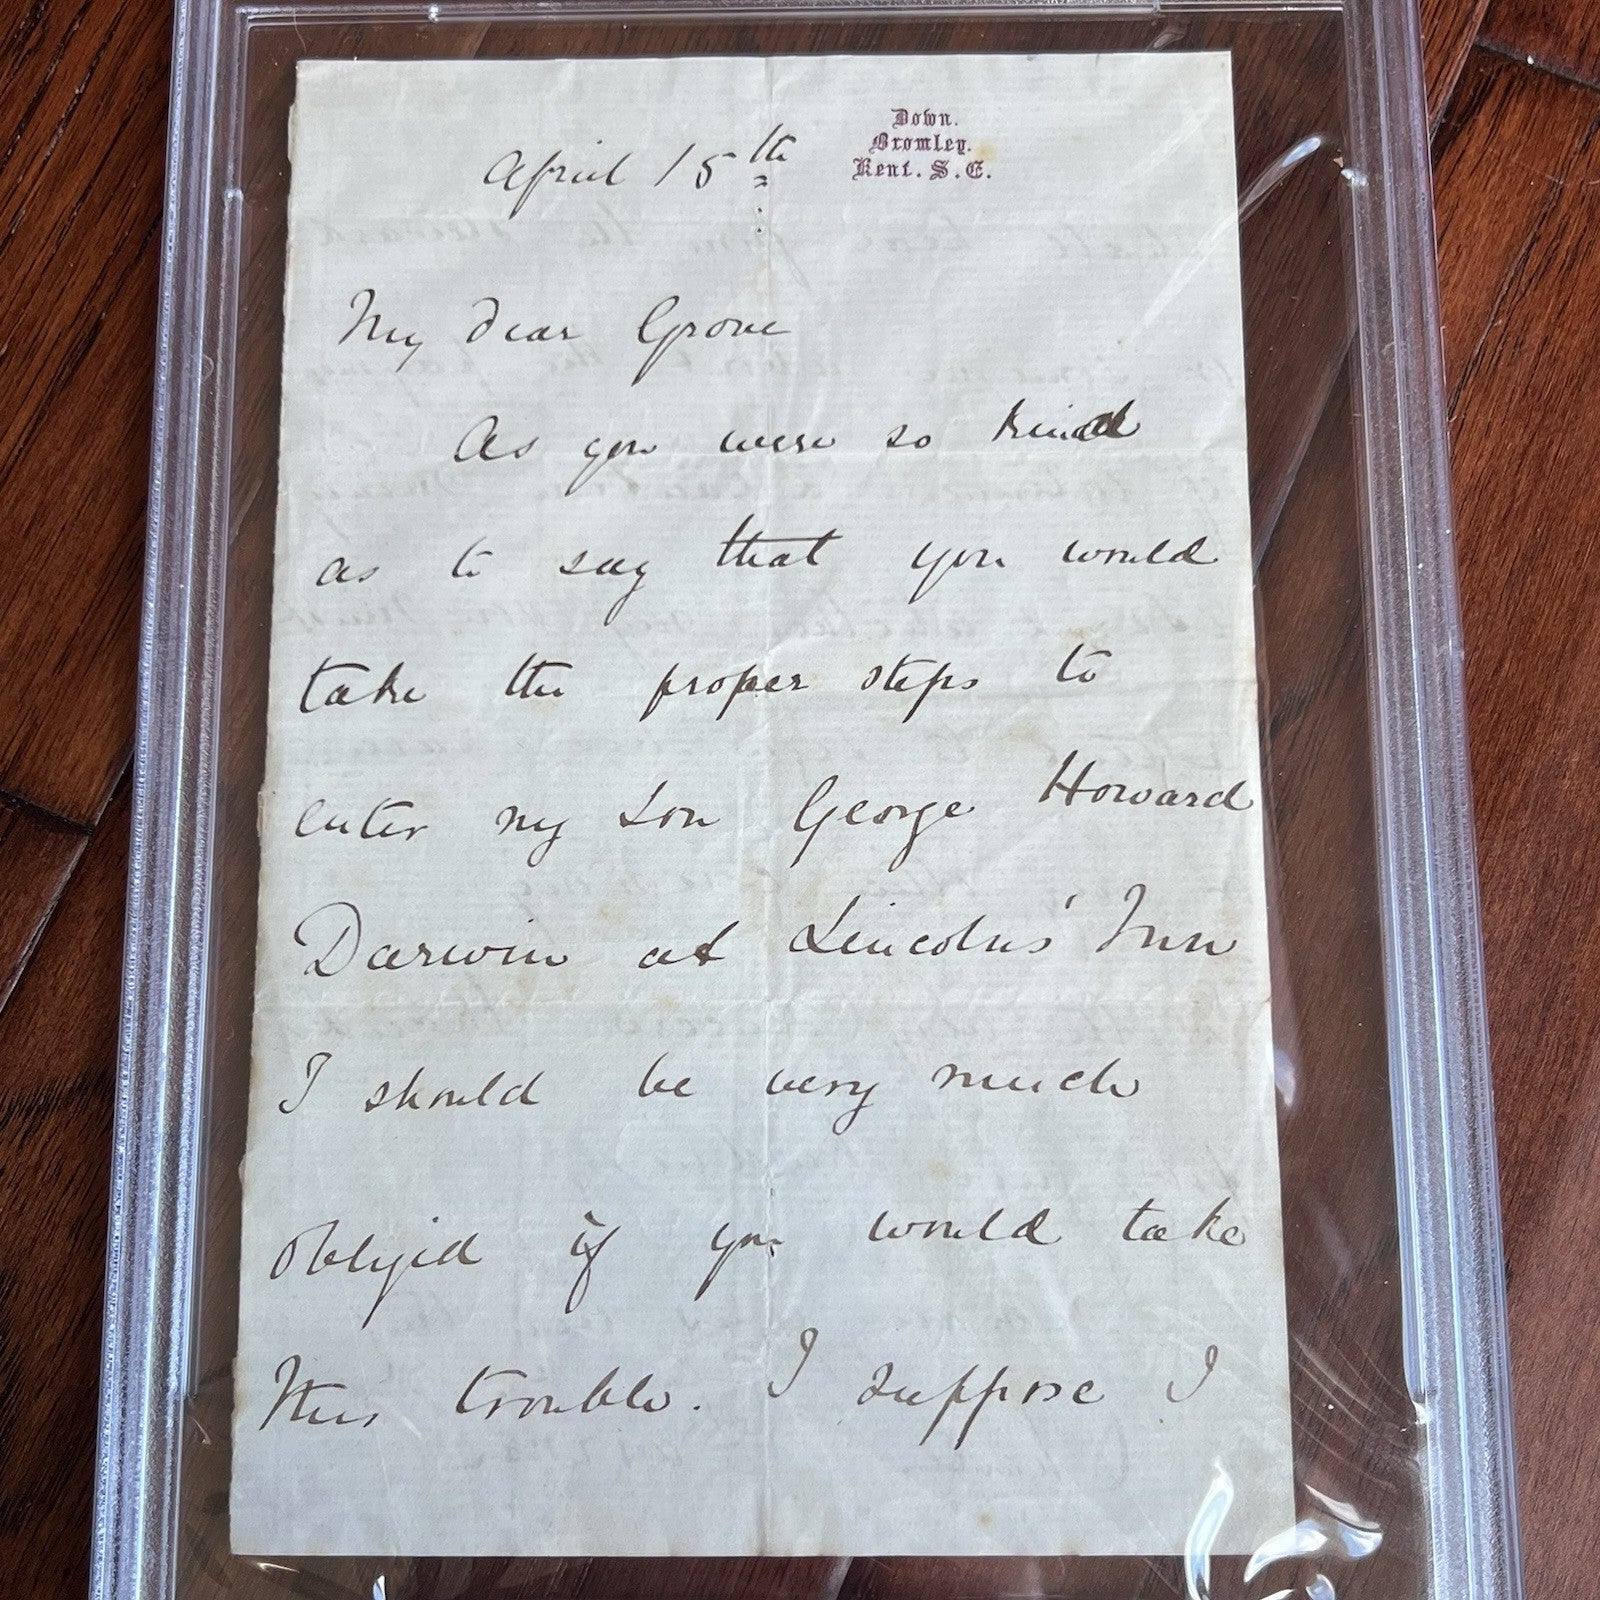 Down.
Bromley.
Kent. S. E.
April 15th
My dear Grove
As you were so kind
as to say that you would
take the proper steps to
enter my son George Howard
Darwin at Lincolns' Inn
I should be very much
obliged if you would take
this trouble. I suppose I